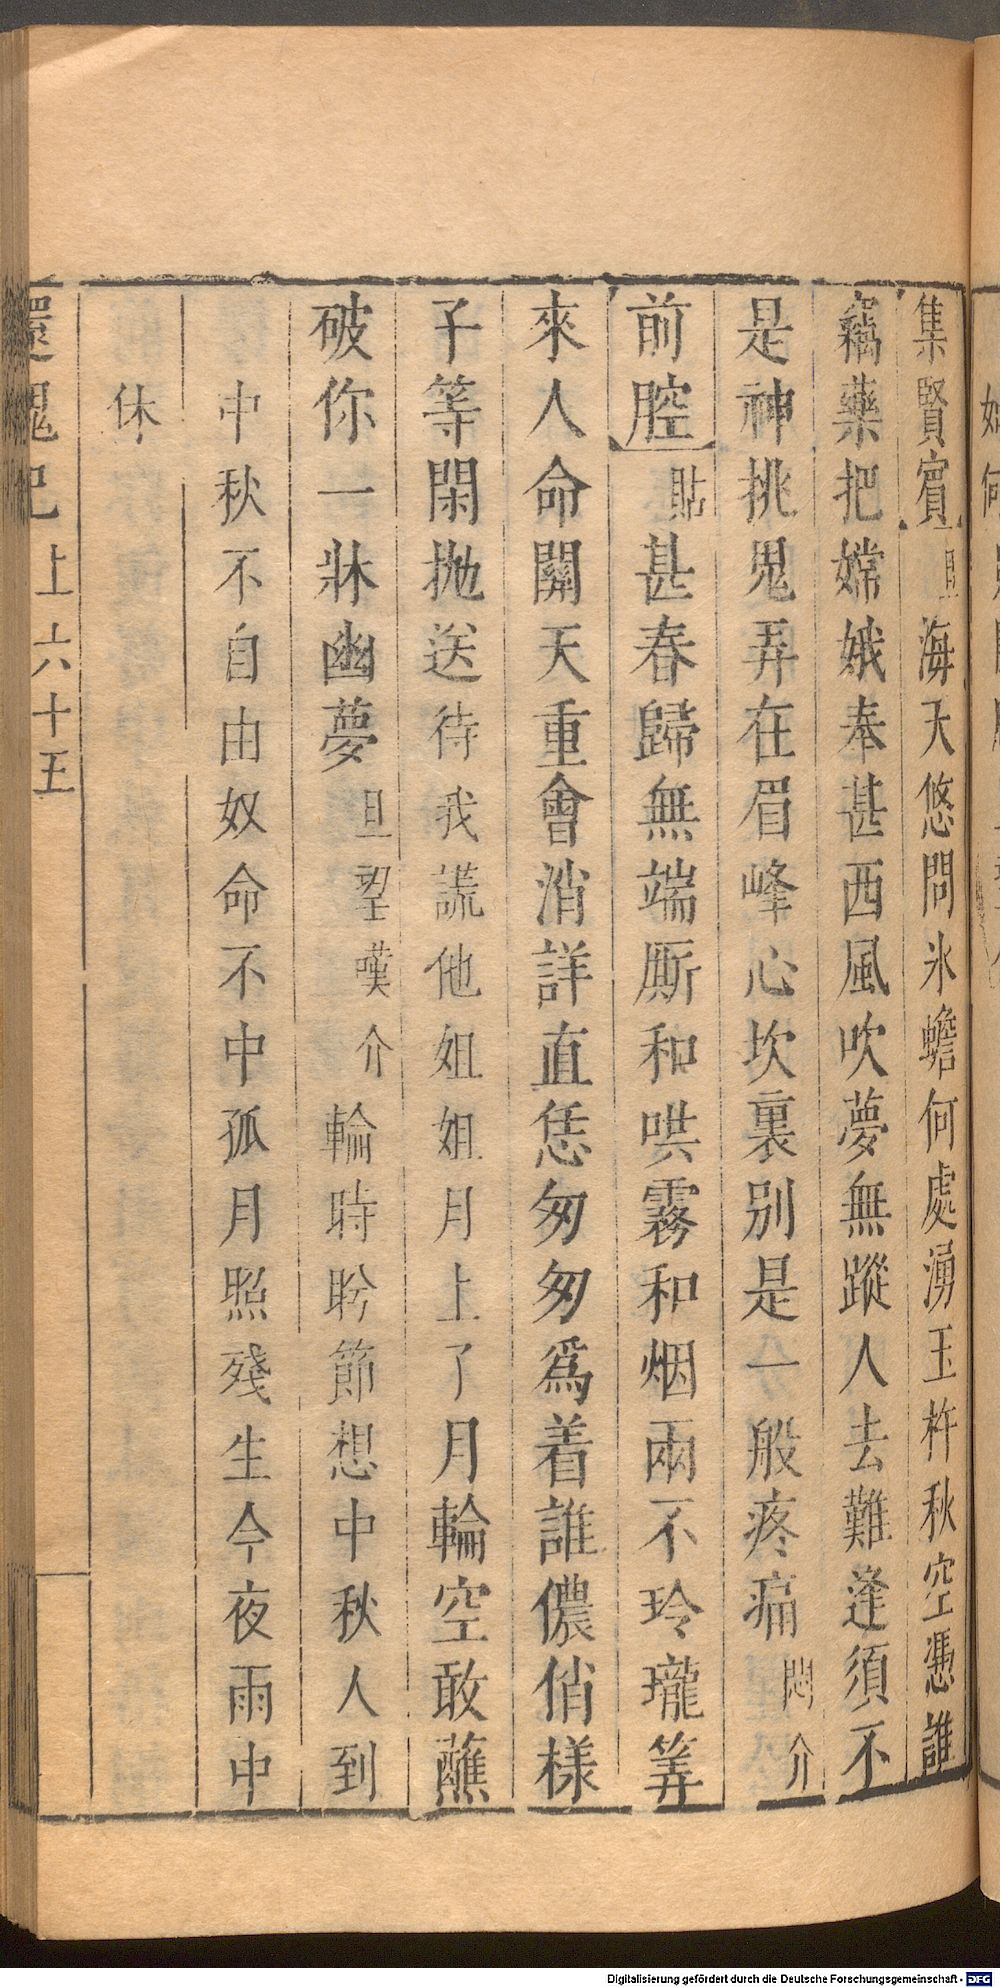 集賢賓旦海天悠問氷蟾何處湧玉杵秋空憑誰
竊藥把嫦娥奉甚西風吹夢無蹤人去難逢須不
是神挑鬼弄在眉峰心坎裏別是一般疼痛悶介
前腔貼甚春歸無端厮和哄霧和烟兩不玲瓏筭
來人命關天重會消詳直恁匆匆爲着誰儂俏樣
子等閑抛送待我謊他姐姐月上了月輪空敢蘸
破你一牀幽夢旦望嘆介輪時盼節想中秋人到
中秋不自由奴命不中孤月照殘生今夜雨中
休
還魂記上六十五
Digitalisierung gefördert durch die Deutsche Forschungsgemeinschaft - DFG